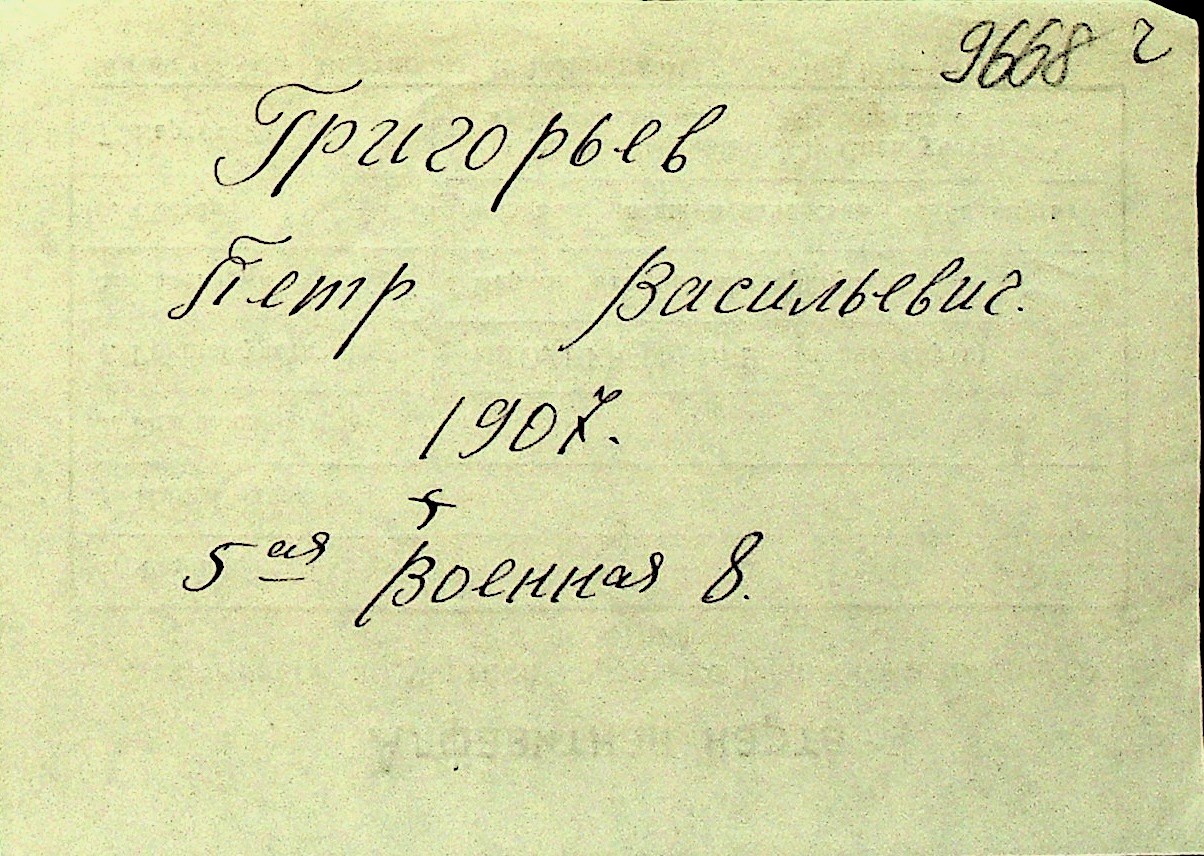 9668 г
Григорьев
Петр Васильевич.
1907.
5
5 ая Военная 8.